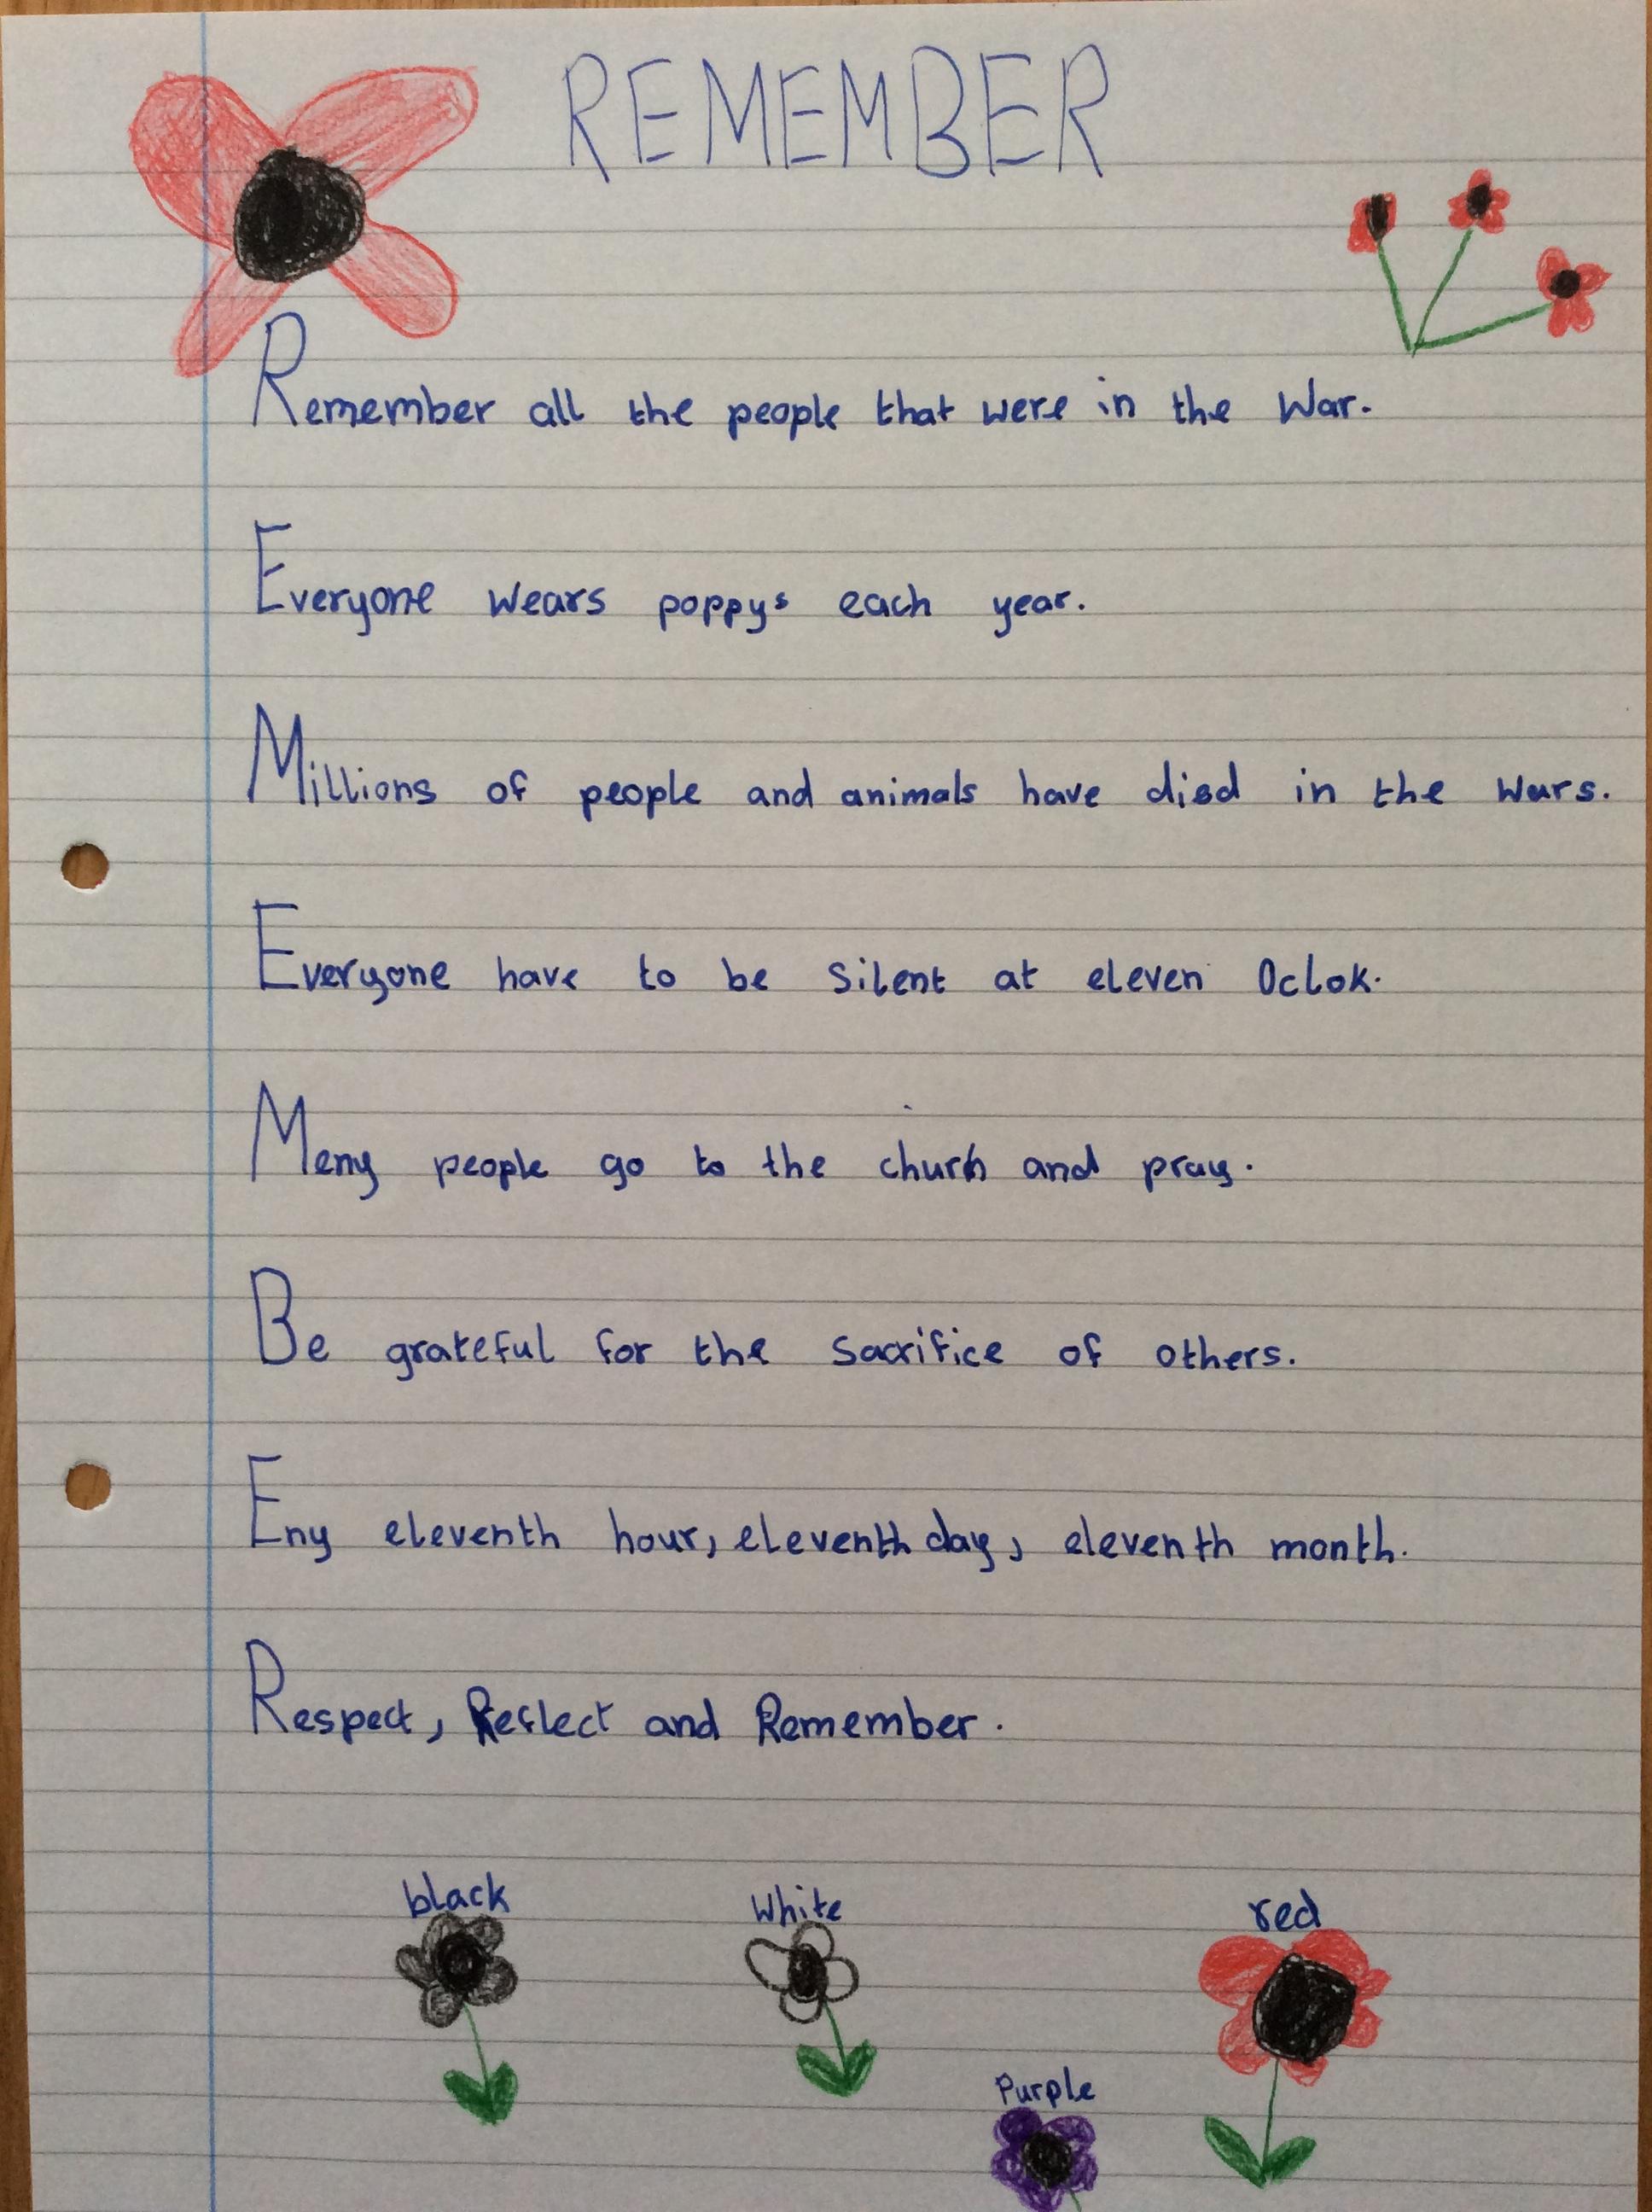 REMEMBER
Remember all the people that were in the War.
Everyone wears poppys each year.
Millions of people and animals have died in the wars.
Everyone have to be silent at eleven Oclok.
Meny people go to the church and pray.
Be grateful for the sacrifice of others.
Eny eleventh hour, eleventh day, eleventh month.
Respect, Reflect and Remember.
black
White
red
Purple